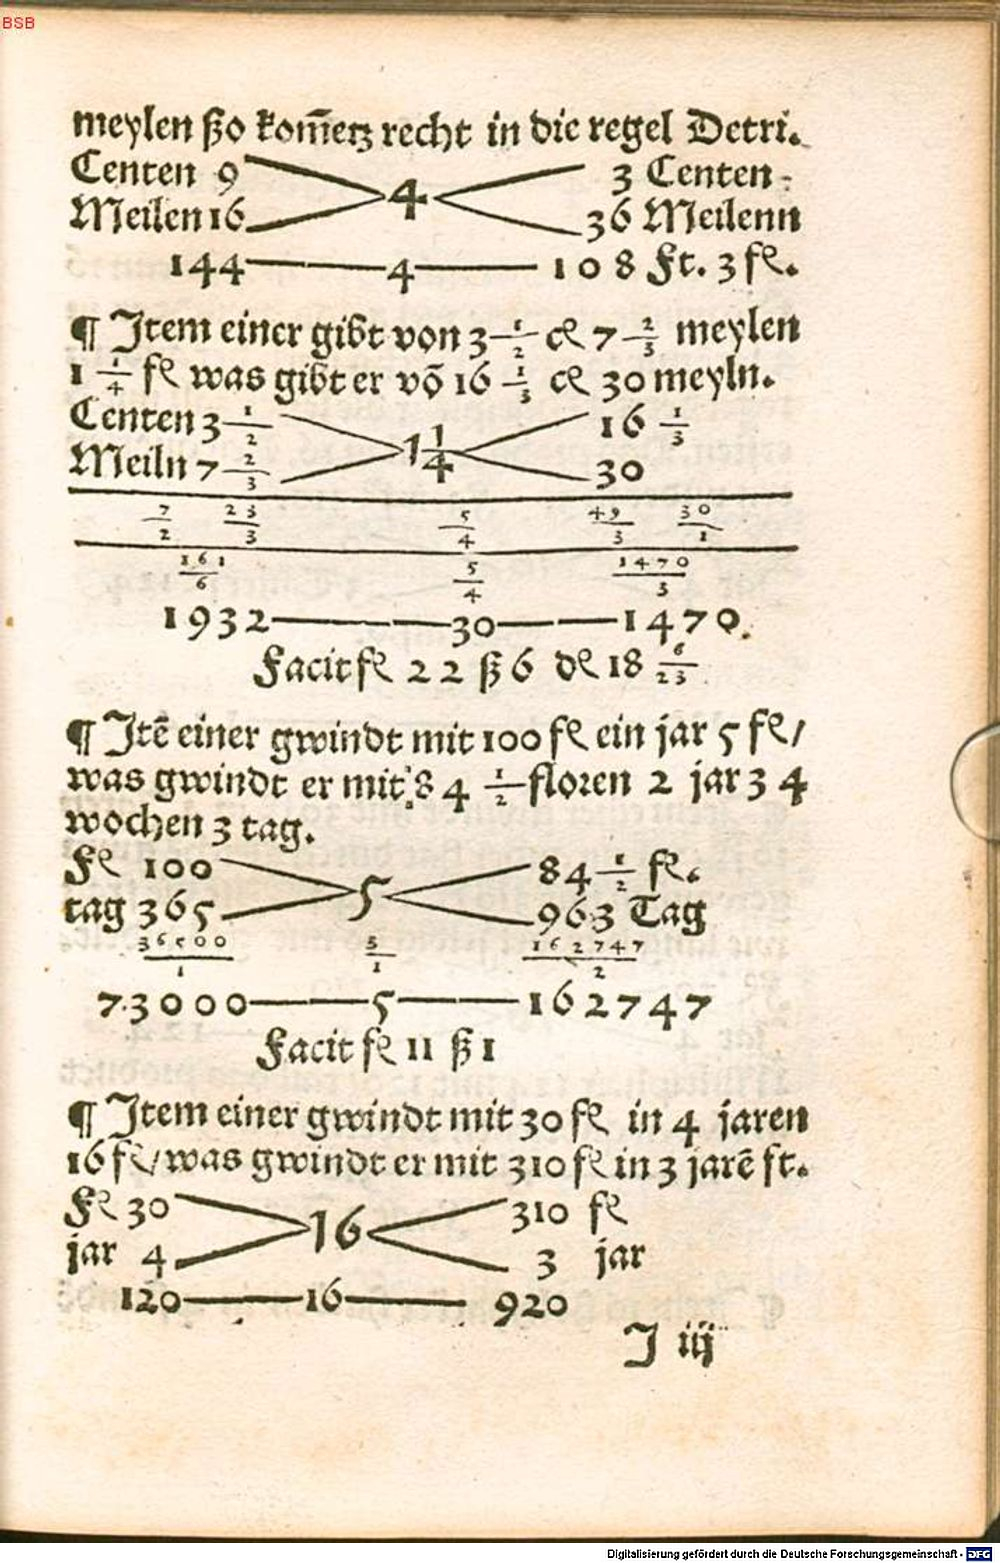 BSB
meylen ßo kom̄etz recht in die regel Detri.
Centen 9 4 3 Centen
Meilen 16 36 Meilenn
144 4 108 Ft. 3 fl.
¶ Item einer gibt von 3 1/2 cl 7 2/3 meylen
1 1/4 fl was gibt er võ 16 1/3 cl 30 meyln.
Centen 3 1/2 1 1/4 16 1/3
Meiln 7 2/3 30
7/2 23/3 5/4 49/3 30/1
161/6 5/4 1470/3
1932 30 1470.
Facit fl 22 ß 6 dl 18 6/23
¶ Itē einer gwindt mit 100 fl ein jar 5 fl/
was gwindt er mit 84 1/2 floren 2 jar 34
wochen 3 tag.
Fl 100 5 84 1/2 fl.
tag 365 963 Tag
36500/1 5/1 162747/2
73000 5 162747
Facit fl 11 ß 1
¶ Item einer gwindt mit 30 fl in 4 jaren
16 fl/ was gwindt er mit 310 fl in 3 jarē ft.
Fl 30 16 310 fl
jar 4 3 jar
120 16 920
J iij
Digitalisierung gefördert durch die Deutsche Forschungsgemeinschaft - DFG